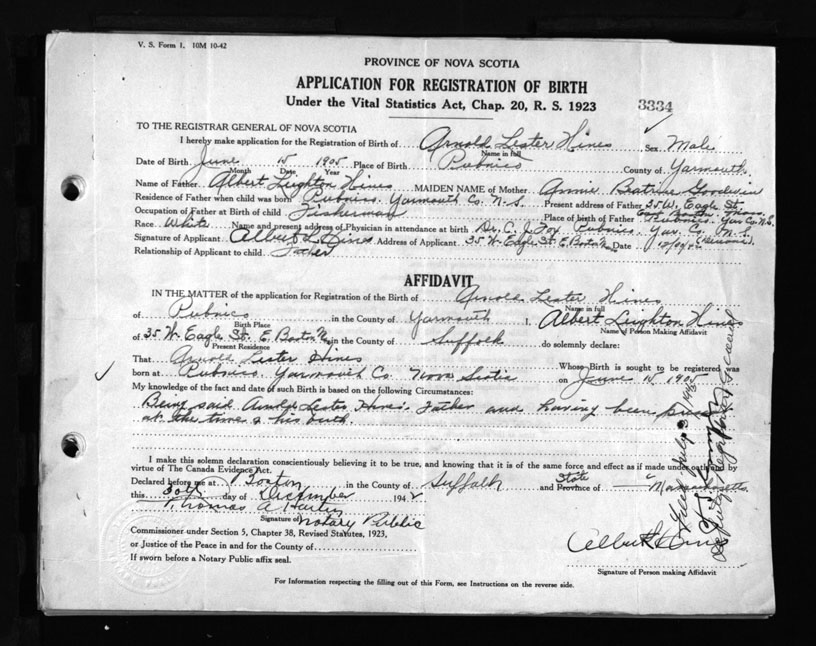 V. S. Form 1. 10M 10-42
PROVINCE OF NOVA SCOTIA
APPLICATION FOR REGISTRATION OF BIRTH
Under the Vital Statistics Act, Chap. 20, R. S. 1923 3334
TO THE REGISTRAR GENERAL OF NOVA SCOTIA
I hereby make application for the Registration of Birth of Arnold Lester Hines Sex Male
Name in full
Date of Birth June 15 1905 Place of Birth Pubnico County of Yarmouth
Month Day Year
Name of Father Albert Leighton Hines MAIDEN NAME of Mother Annie Beatrice Goodwin
Residence of Father when child was born Pubnico Yarmouth Co. N.S. Present address of Father 35 W. Eagle St.
East Boston Mass.
Occupation of Father at Birth of child Fisherman Place of birth of Father Pubnico. Yar. Co. N.S.
Race White Name and present address of Physician in attendance at birth Dr. C. J. Fox Pubnico. Yar. Co. N.S.
Signature of Applicant Albert L Hines Address of Applicant 35 W. Eagle St. E. Boston Date
Relationship of Applicant to child Father
AFFIDAVIT
IN THE MATTER of the application for Registration of the Birth of Arnold Lester Hines
Name in full
of Pubnico in the County of Yarmouth I, Albert Leighton Hines
Birth Place Name of Person Making Affidavit
of 35 W. Eagle St. E. Boston in the County of Suffolk do solemnly declare:
Present Residence
That Arnold Lester Hines Whose Birth is sought to be registered was
born at Pubnico. Yarmouth Co. Nova Scotia on June 15 1905
My knowledge of the fact and date of such Birth is based on the following Circumstances:
Being said Arnold Lester Hines. Father and having been present
at the time of his birth.
I make this solemn declaration conscientiously believing it to be true, and knowing that it is of the same force and effect as if made under oath and by
virtue of The Canada Evidence Act.
Declared before me at Boston in the County of Suffolk State and Province of Massachusetts
this 30th day of December 1942
Thomas A
Signature of Notary Public
Commissioner under Section 5, Chapter 38, Revised Statutes, 1923,
or Justice of the Peace in and for the County of
If sworn before a Notary Public affix seal.
Albert L Hines
Signature of Person making Affidavit
For Information respecting the filling out of this Form, see Instructions on the reverse side.
Filed July
Deputy Registrar General